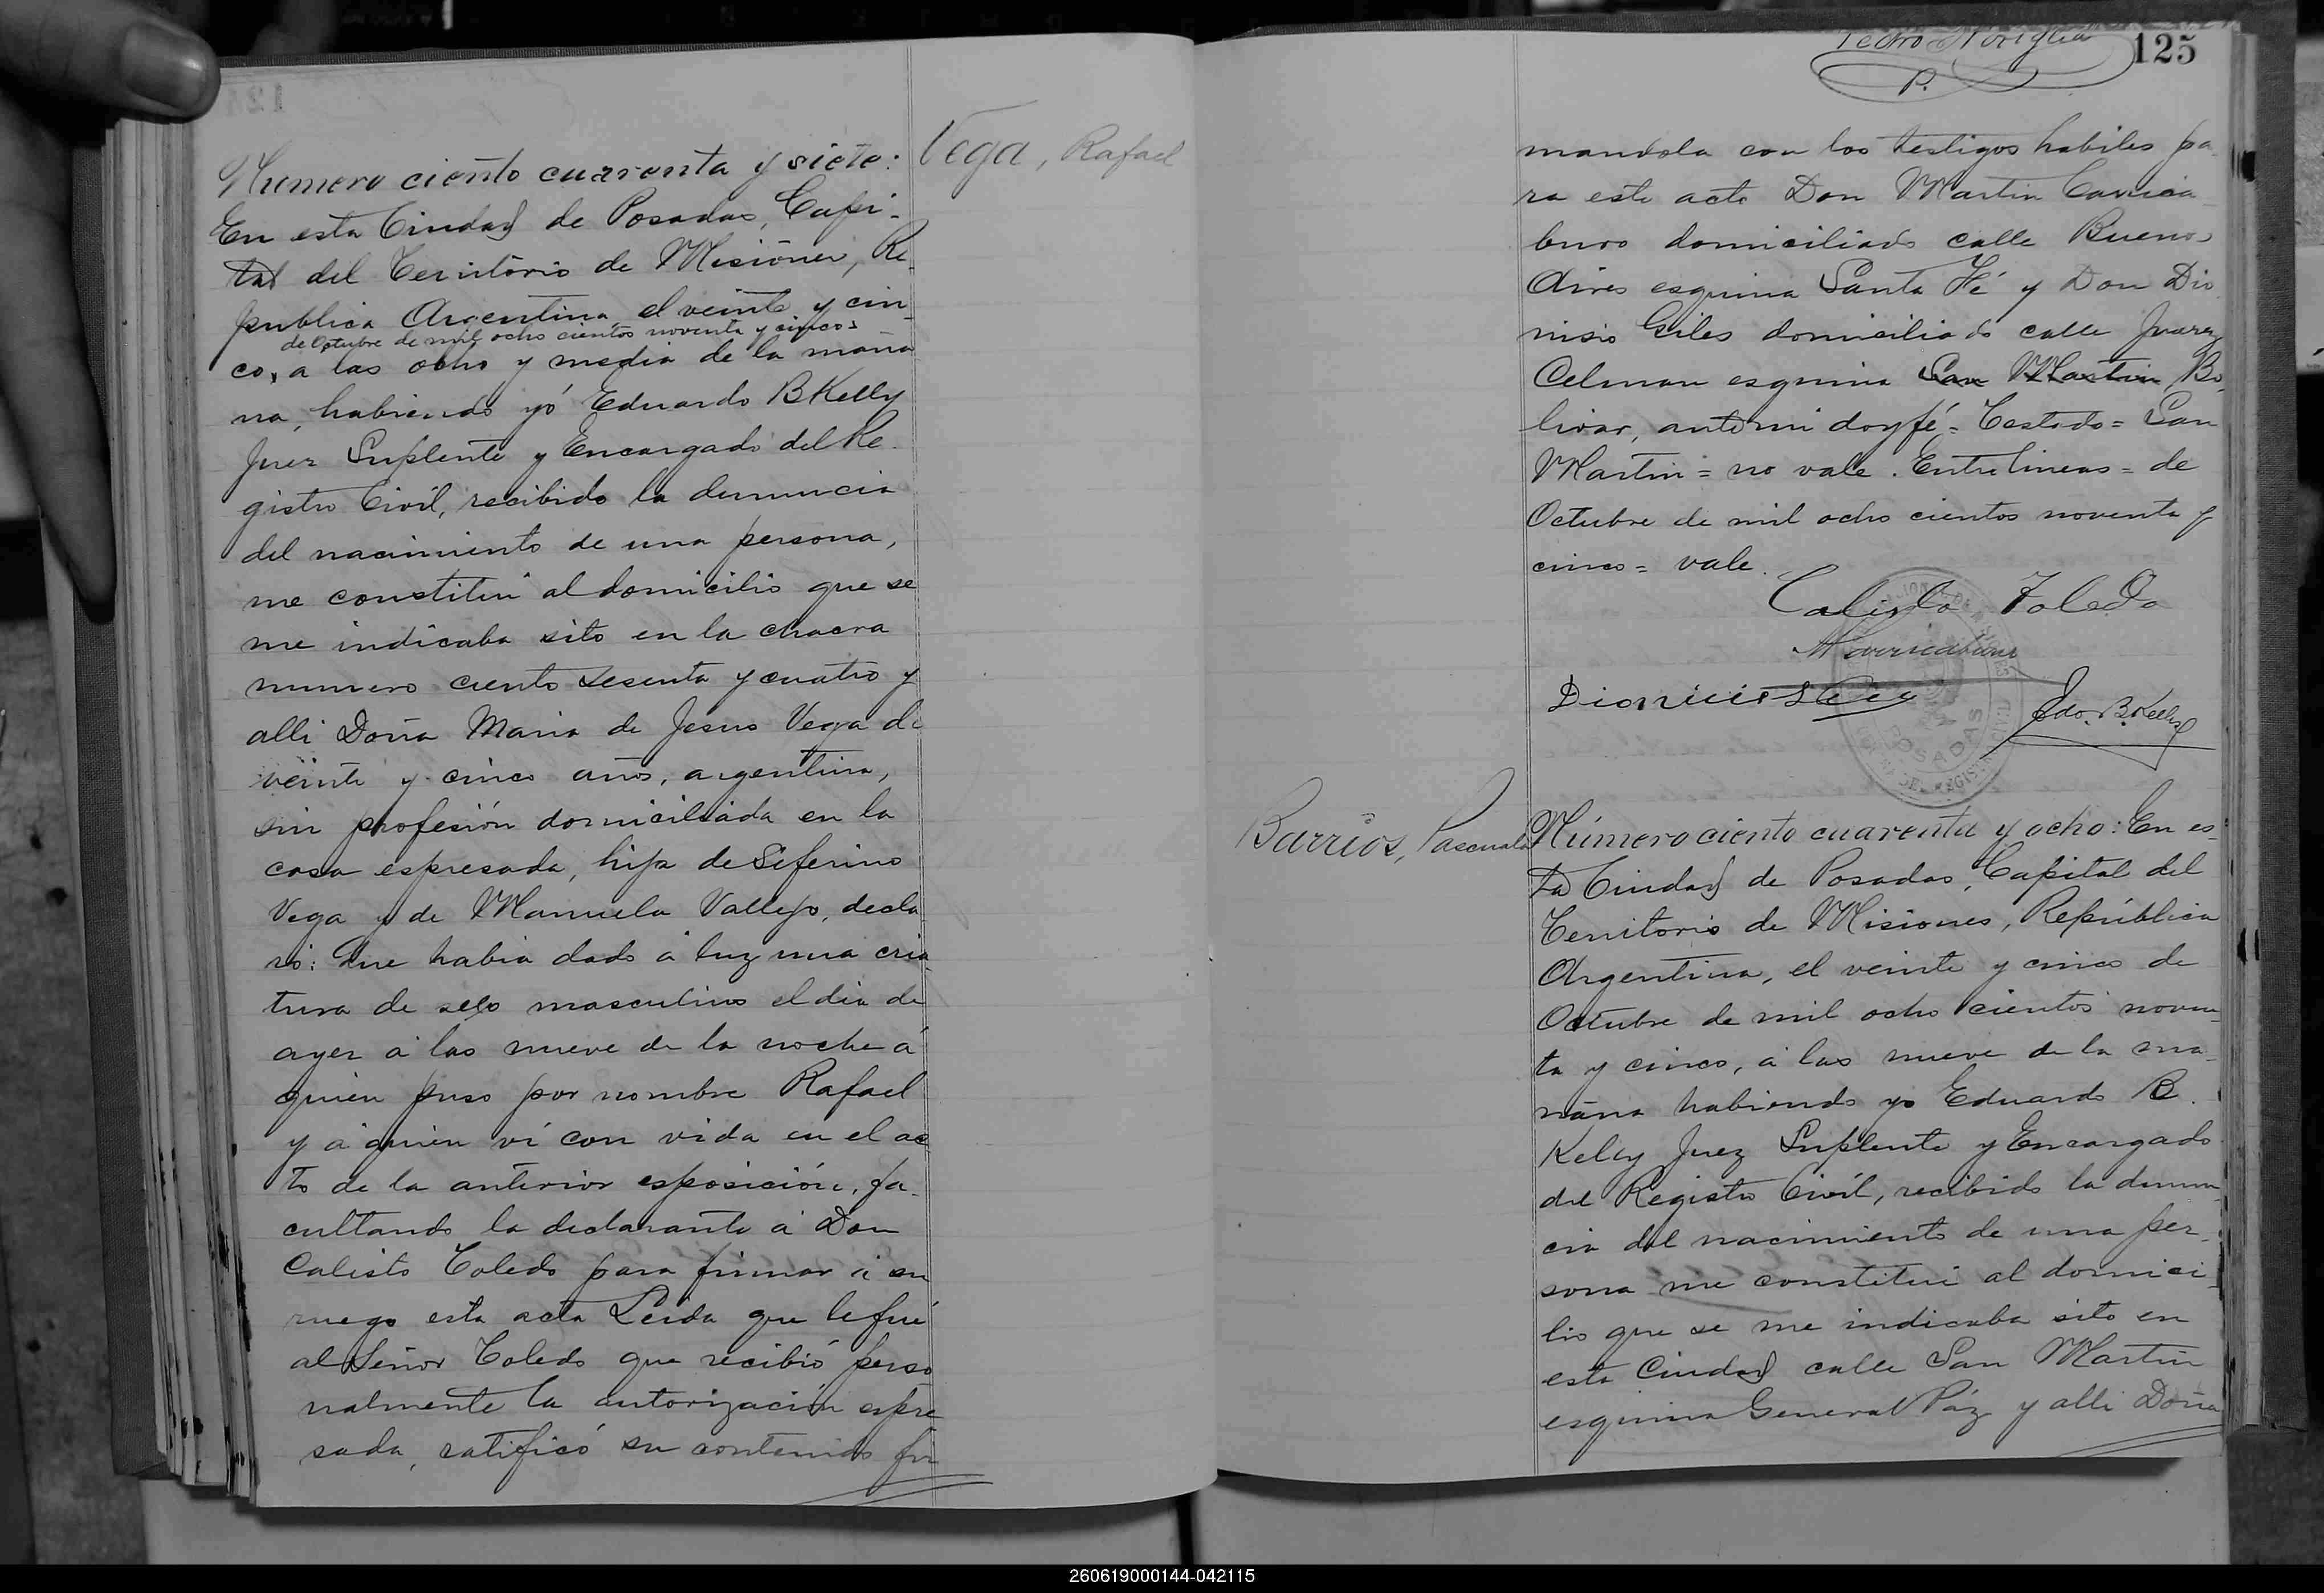 Vega, Rafael
Numero ciento cuarenta y siete:
En esta Ciudad de Posadas, Capi-
tal del Territorio de Misiones, Re-
publica Argentina el veinte y cin-
de Octubre de mil ocho cientos noventa y cinco
co, a las ocho y media de la maña
na, habiendo yó Eduardo B Kelly
Juez Suplente y Encargado del Re-
gistro Civil, recibido la denuncia
del nacimiento de una persona,
me constituí al domicilio que se
me indicaba sito en la chacra
numero ciento sesenta y cuatro y
alli Doña Maria de Jesus Vega de
veinte y cinco años, argentina,
sin profesión domiciliada en la
casa espresada, hija de Seferino
Vega y de Manuela Vallejo, decla
ró: Que habia dado á luz una cria
tura de sexo masculino el dia de
ayer á las nueve de la noche á
quien puso por nombre Rafael
y á quien ví con vida en el ac
to de la anterior esposición, fa-
cultando la declarante á Don
Calisto Toledo para firmar á su
ruego esta acta Leida que le fué
al Señor Toledo que recibió perso
nalmente la autorización espre
sada, ratificó su contenido fir
125
Pedro Noriglia
P.
mandola con los testigos habiles pa-
ra este acto Don Martin Carrica
buro domiciliado calle Buenos
Aires esquina Santa Fé y Don Dio
nisio Giles domiciliado calle Juarez
Celman esquina San Martin Bo
livar, ante mi doy fé = Testado = San
Martin = no vale. Entrelineas = de
Octubre de mil ocho cientos noventa y
cinco = vale.
Calisto Toledo
Dionicio
Edo. B. Kelly
POSADAS
Barrios, Pascuala
Número ciento cuarenta y ocho: En es-
ta Ciudad de Posadas, Capital del
Territorio de Misiones, República
Argentina, el veinte y cinco de
Octubre de mil ocho cientos noven-
ta y cinco, á las nueve de la ma-
ñana habiendo yo Eduardo B.
Kelly Juez Suplente y Encargado
del Registro Civil, recibido la denun-
cia del nacimiento de una per-
sona me constituí al domici-
lio que se me indicaba sito en
esta Ciudad calle San Martin
esquina General Páz y alli Doña
260619000144-042115